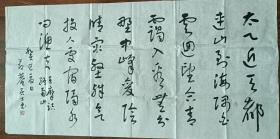 太乙近天都
連山到海隅白
雲迴望合青
靄入看無分
野中峰變陰
晴眾壑殊欲
投人處宿隔水
問樵夫